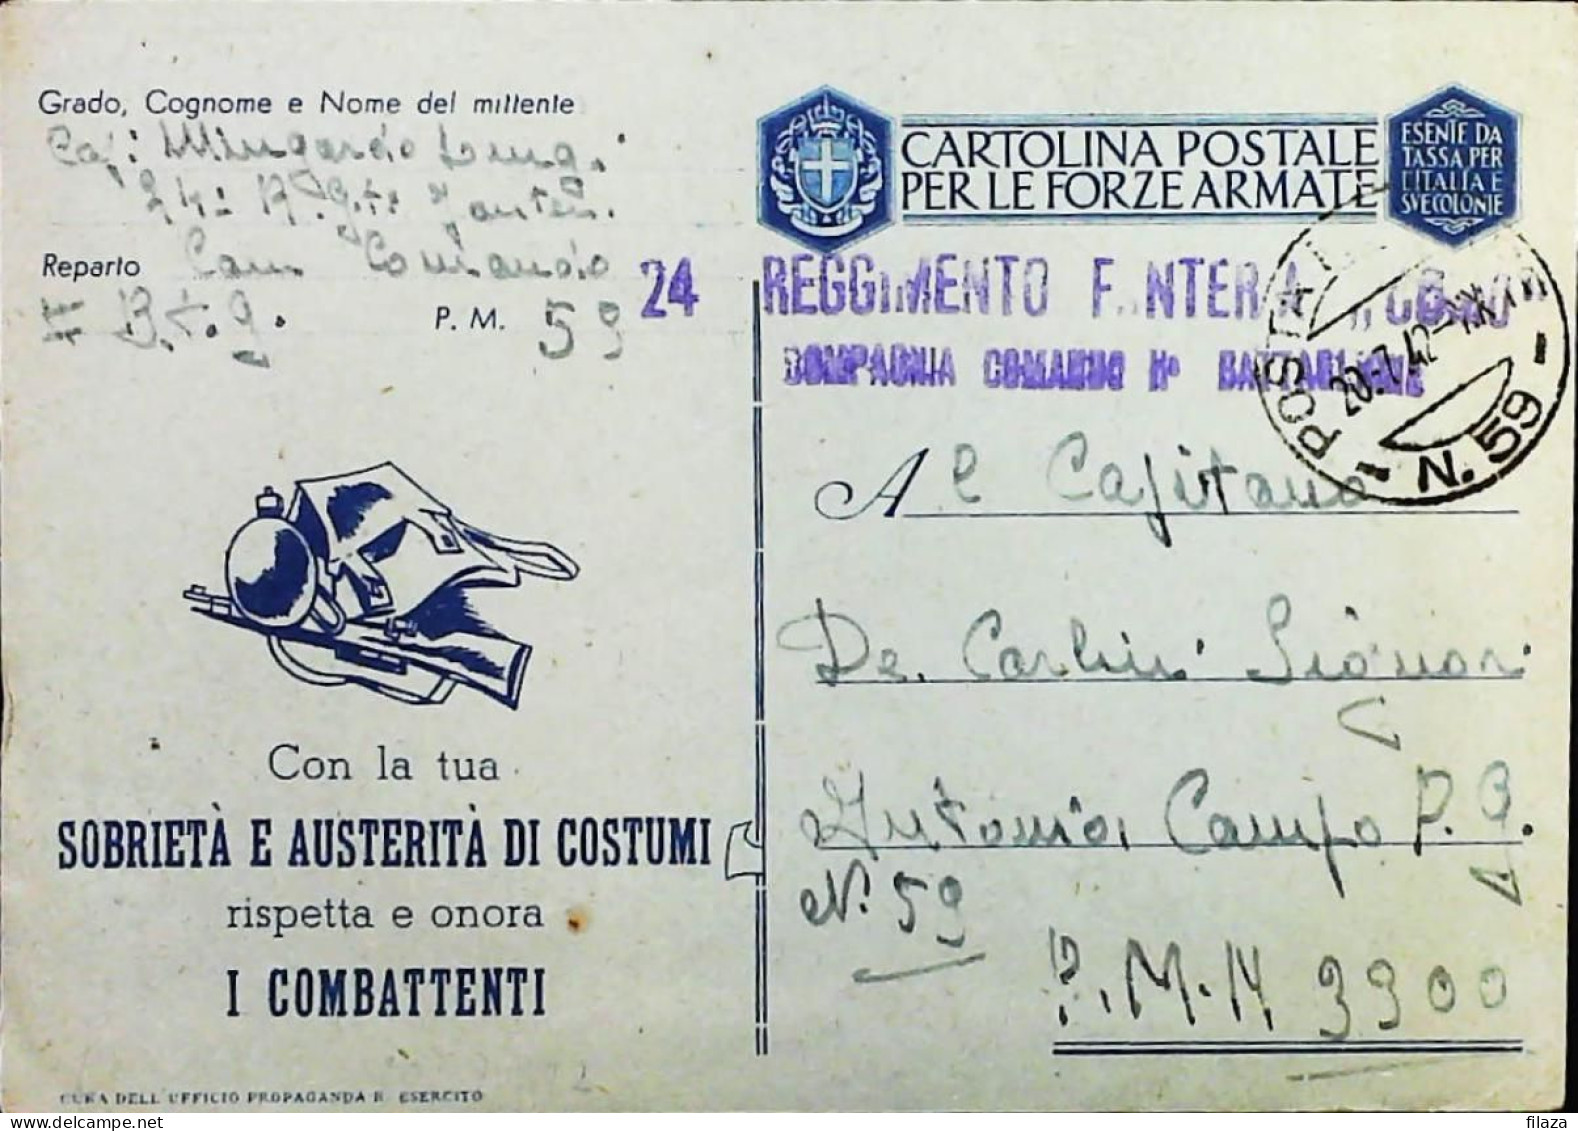 Grado, Cognome e Nome del mittente
Reparto Com Comando
P. M. 59
CARTOLINA POSTALE
PER LE FORZE ARMATE
ESENTE DA
TASSA PER
L'ITALIA E
SVE COLONIE
24 REGGIMENTO F.NTERIA "COMO"
COMPAGNIA COMANDO II° BATTAGLIONE
POSTA
20.7.42
N. 59
Al Capitano
De Carlini Signor
Antonio, Campo P. G.
N. 59
P.M. N 3300
Con la tua
SOBRIETÀ E AUSTERITÀ DI COSTUMI
rispetta e onora
I COMBATTENTI
CURA DELL'UFFICIO PROPAGANDA R. ESERCITO
filaza